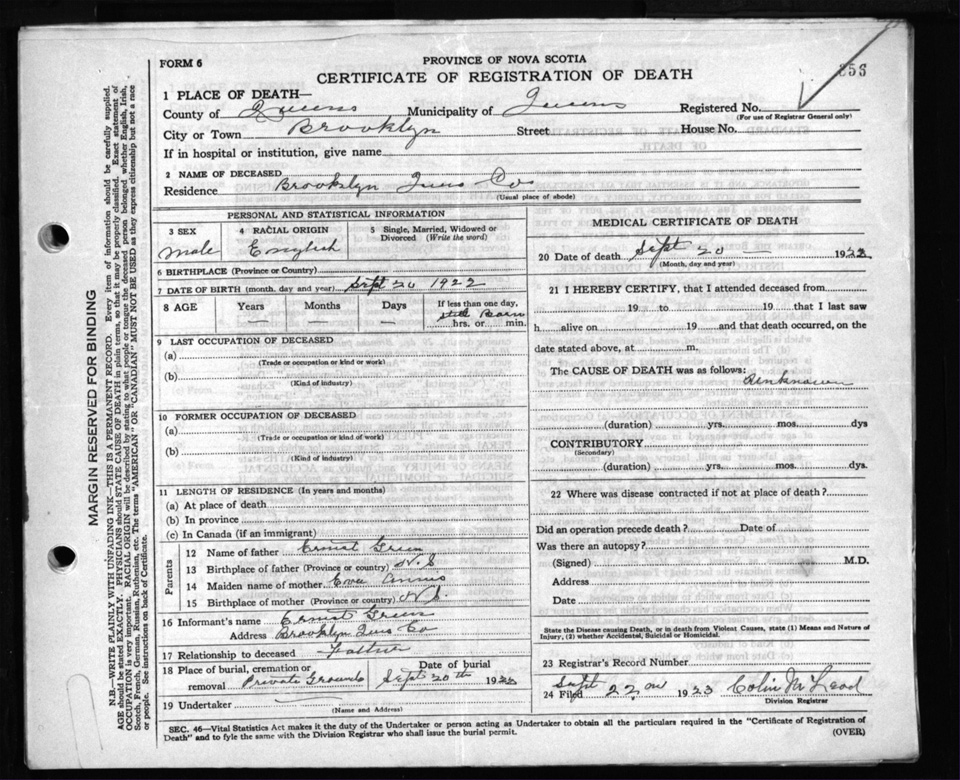 FORM 6
PROVINCE OF NOVA SCOTIA
CERTIFICATE OF REGISTRATION OF DEATH
1 PLACE OF DEATH—
County of Queens Municipality of Queens Registered No.
(For use of Registrar General only)
City or Town Brooklyn Street House No.
If in hospital or institution, give name
2 NAME OF DECEASED
Residence Brooklyn Quns Co
(Usual place of abode)
PERSONAL AND STATISTICAL INFORMATION
3 SEX 4 RACIAL ORIGIN 5 Single, Married, Widowed or Divorced (Write the word)
male English
6 BIRTHPLACE (Province or Country)
7 DATE OF BIRTH (month, day and year) Sept 20 1922
8 AGE Years Months Days If less than one day,
— — — Still Born
hrs. or min.
9 LAST OCCUPATION OF DECEASED
(a)
(Trade or occupation or kind of work)
(b)
(Kind of industry)
10 FORMER OCCUPATION OF DECEASED
(a)
(Trade or occupation or kind of work)
(b)
(Kind of industry)
11 LENGTH OF RESIDENCE (In years and months)
(a) At place of death
(b) In province
(c) In Canada (if an immigrant)
Parents
12 Name of father Ernest Green
13 Birthplace of father (Province or country) N.S
14 Maiden name of mother
15 Birthplace of mother (Province or country) N.S
16 Informant's name Ernest Green
Address Brooklyn Quns Co
17 Relationship to deceased Father
18 Place of burial, cremation or removal Private Grounds Date of burial Sept 20th 192
19 Undertaker
(Name and Address)
MEDICAL CERTIFICATE OF DEATH
20 Date of death Sept 20 — 192
(Month, day and year)
21 I HEREBY CERTIFY, that I attended deceased from
19 to 19 that I last saw
h alive on 19 and that death occurred, on the
date stated above, at m.
The CAUSE OF DEATH was as follows:
unknown
(duration) yrs. mos. dys
CONTRIBUTORY
(Secondary)
(duration) yrs. mos. dys.
22 Where was disease contracted if not at place of death?
Did an operation precede death? Date of
Was there an autopsy?
(Signed) M.D.
Address
Date
State the Disease causing Death, or in death from Violent Causes, state (1) Means and Nature of
Injury, (2) whether Accidental, Suicidal or Homicidal.
23 Registrar's Record Number
24 Filed Sept 22 1923 Colin McLeod
Division Registrar
SEC. 46—Vital Statistics Act makes it the duty of the Undertaker or person acting as Undertaker to obtain all the particulars required in the "Certificate of Registration of
Death" and to fyle the same with the Division Registrar who shall issue the burial permit.
(OVER)
MARGIN RESERVED FOR BINDING
N.B.—WRITE PLAINLY WITH UNFADING INK—THIS IS A PERMANENT RECORD. Every item of information should be carefully supplied.
AGE should be stated EXACTLY. PHYSICIANS should STATE CAUSE OF DEATH in plain terms, so that it may be properly classified. Exact statement of
OCCUPATION is very important. RACIAL ORIGIN will be described by stating to what people or tongue the deceased person belonged whether English, Irish,
Scotch, French, German, Russian, Ruthenian, etc. The terms "AMERICAN" OR "CANADIAN" MUST NOT BE USED as they express citizenship but not a race
or people. See instructions on back of Certificate.